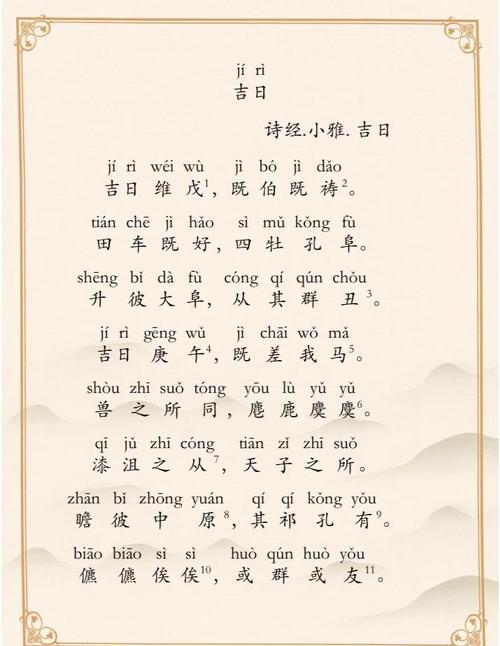 jí rì
吉日
诗经.小雅. 吉日
jí rì wéi wù jì bó jì dǎo
吉日维戊1，既伯既祷2。
tián chē jì hǎo sì mǔ kǒng fù
田车既好，四牡孔阜。
shēng bǐ dà fù cóng qí qún chǒu
升彼大阜，从其群丑3。
jí rì gēng wǔ jì chāi wǒ mǎ
吉日庚午4，既差我马5。
shòu zhī suǒ tóng yōu lù yǔ yǔ
兽之所同，麀鹿麌麌6。
qī jǔ zhī cóng tiān zǐ zhī suǒ
漆沮之从7，天子之所。
zhān bǐ zhōng yuán qí qí kǒng yǒu
瞻彼中原8，其祁孔有9。
biāo biāo sì sì huò qún huò yǒu
儦儦俟俟10，或群或友11。